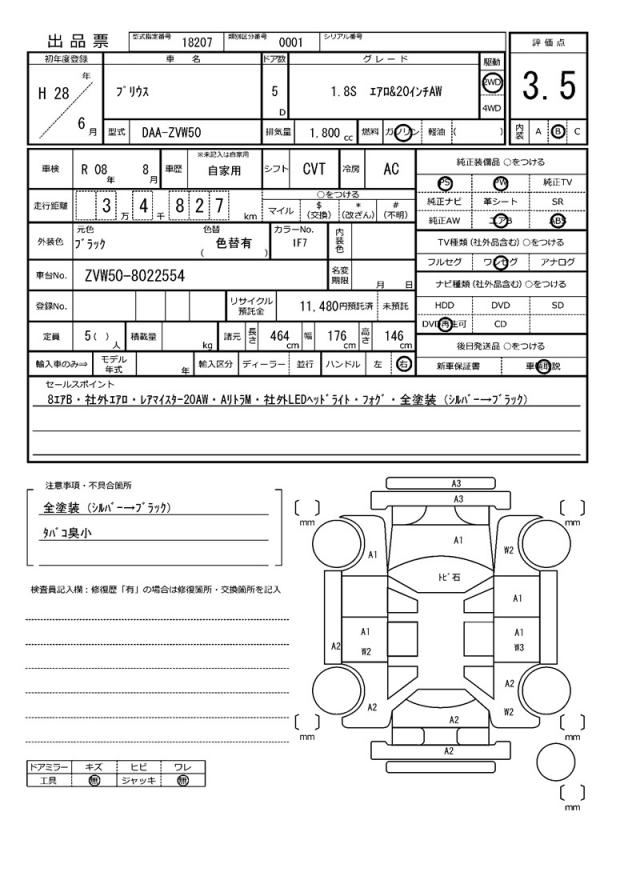 出品票 型式指定番号 18207 類別区分番号 0001 シリアル番号
評価点
3.5
初年度登録 車名 ドア数 グレード 駆動
H 28 年 6 月
ﾌﾟﾘｳｽ 5 D 1.8S ｴｱﾛ&20インチAW 2WD
4WD
型式 DAA-ZVW50 排気量 1.800 cc 燃料 ガソリン 軽油 ( )
内装 A B C
車検 R 08 年 8 月 車歴 ※未記入は自家用 自家用 シフト CVT 冷房 AC
走行距離 3 万 4 千 8 2 7 km
○をつける
マイル $(交換) *(改ざん) #(不明)
外装色 元色 ﾌﾞﾗｯｸ 色替 ( 色替有 ) カラーNo. 1F7 内装色
車台No. ZVW50-8022554 名変期限 月 日
登録No. リサイクル預託金 11,480円預託済 未預託
定員 5( ) 人 積載量 kg 諸元 長さ 464 cm 幅 176 cm 高さ 146 cm
輸入車のみ⇒ モデル年式 年 輸入区分 ディーラー 並行 ハンドル 左 右
純正装備品 ○をつける
PS PW 純正TV
純正ナビ 革シート SR
純正AW エアB ABS
TV種類 (社外品含む) ○をつける
フルセグ ワンセグ アナログ
ナビ種類 (社外品含む) ○をつける
HDD DVD SD
DVD再生可 CD
後日発送品 ○をつける
新車保証書 車輌取説
セールスポイント
8ｴｱB・社外ｴｱﾛ・ﾚｱﾏｲｽﾀｰ20AW・AﾘﾄﾗM・社外LEDﾍｯﾄﾞﾗｲﾄ・ﾌｫｸﾞ・全塗装 (ｼﾙﾊﾞｰ→ﾌﾞﾗｯｸ)
注意事項・不具合箇所
全塗装 (ｼﾙﾊﾞｰ→ﾌﾞﾗｯｸ)
ﾀﾊﾞｺ臭小
検査員記入欄：修復歴「有」の場合は修復箇所・交換箇所を記入
ドアミラー キズ ヒビ ワレ
工具 無 ジャッキ 無
A3
A3
mm mm
A1 A1 W2
ﾄﾋﾞ石
A1
A1 A1
A2 W2 W3
A2
A2 W2
A2
mm A2 mm
mm